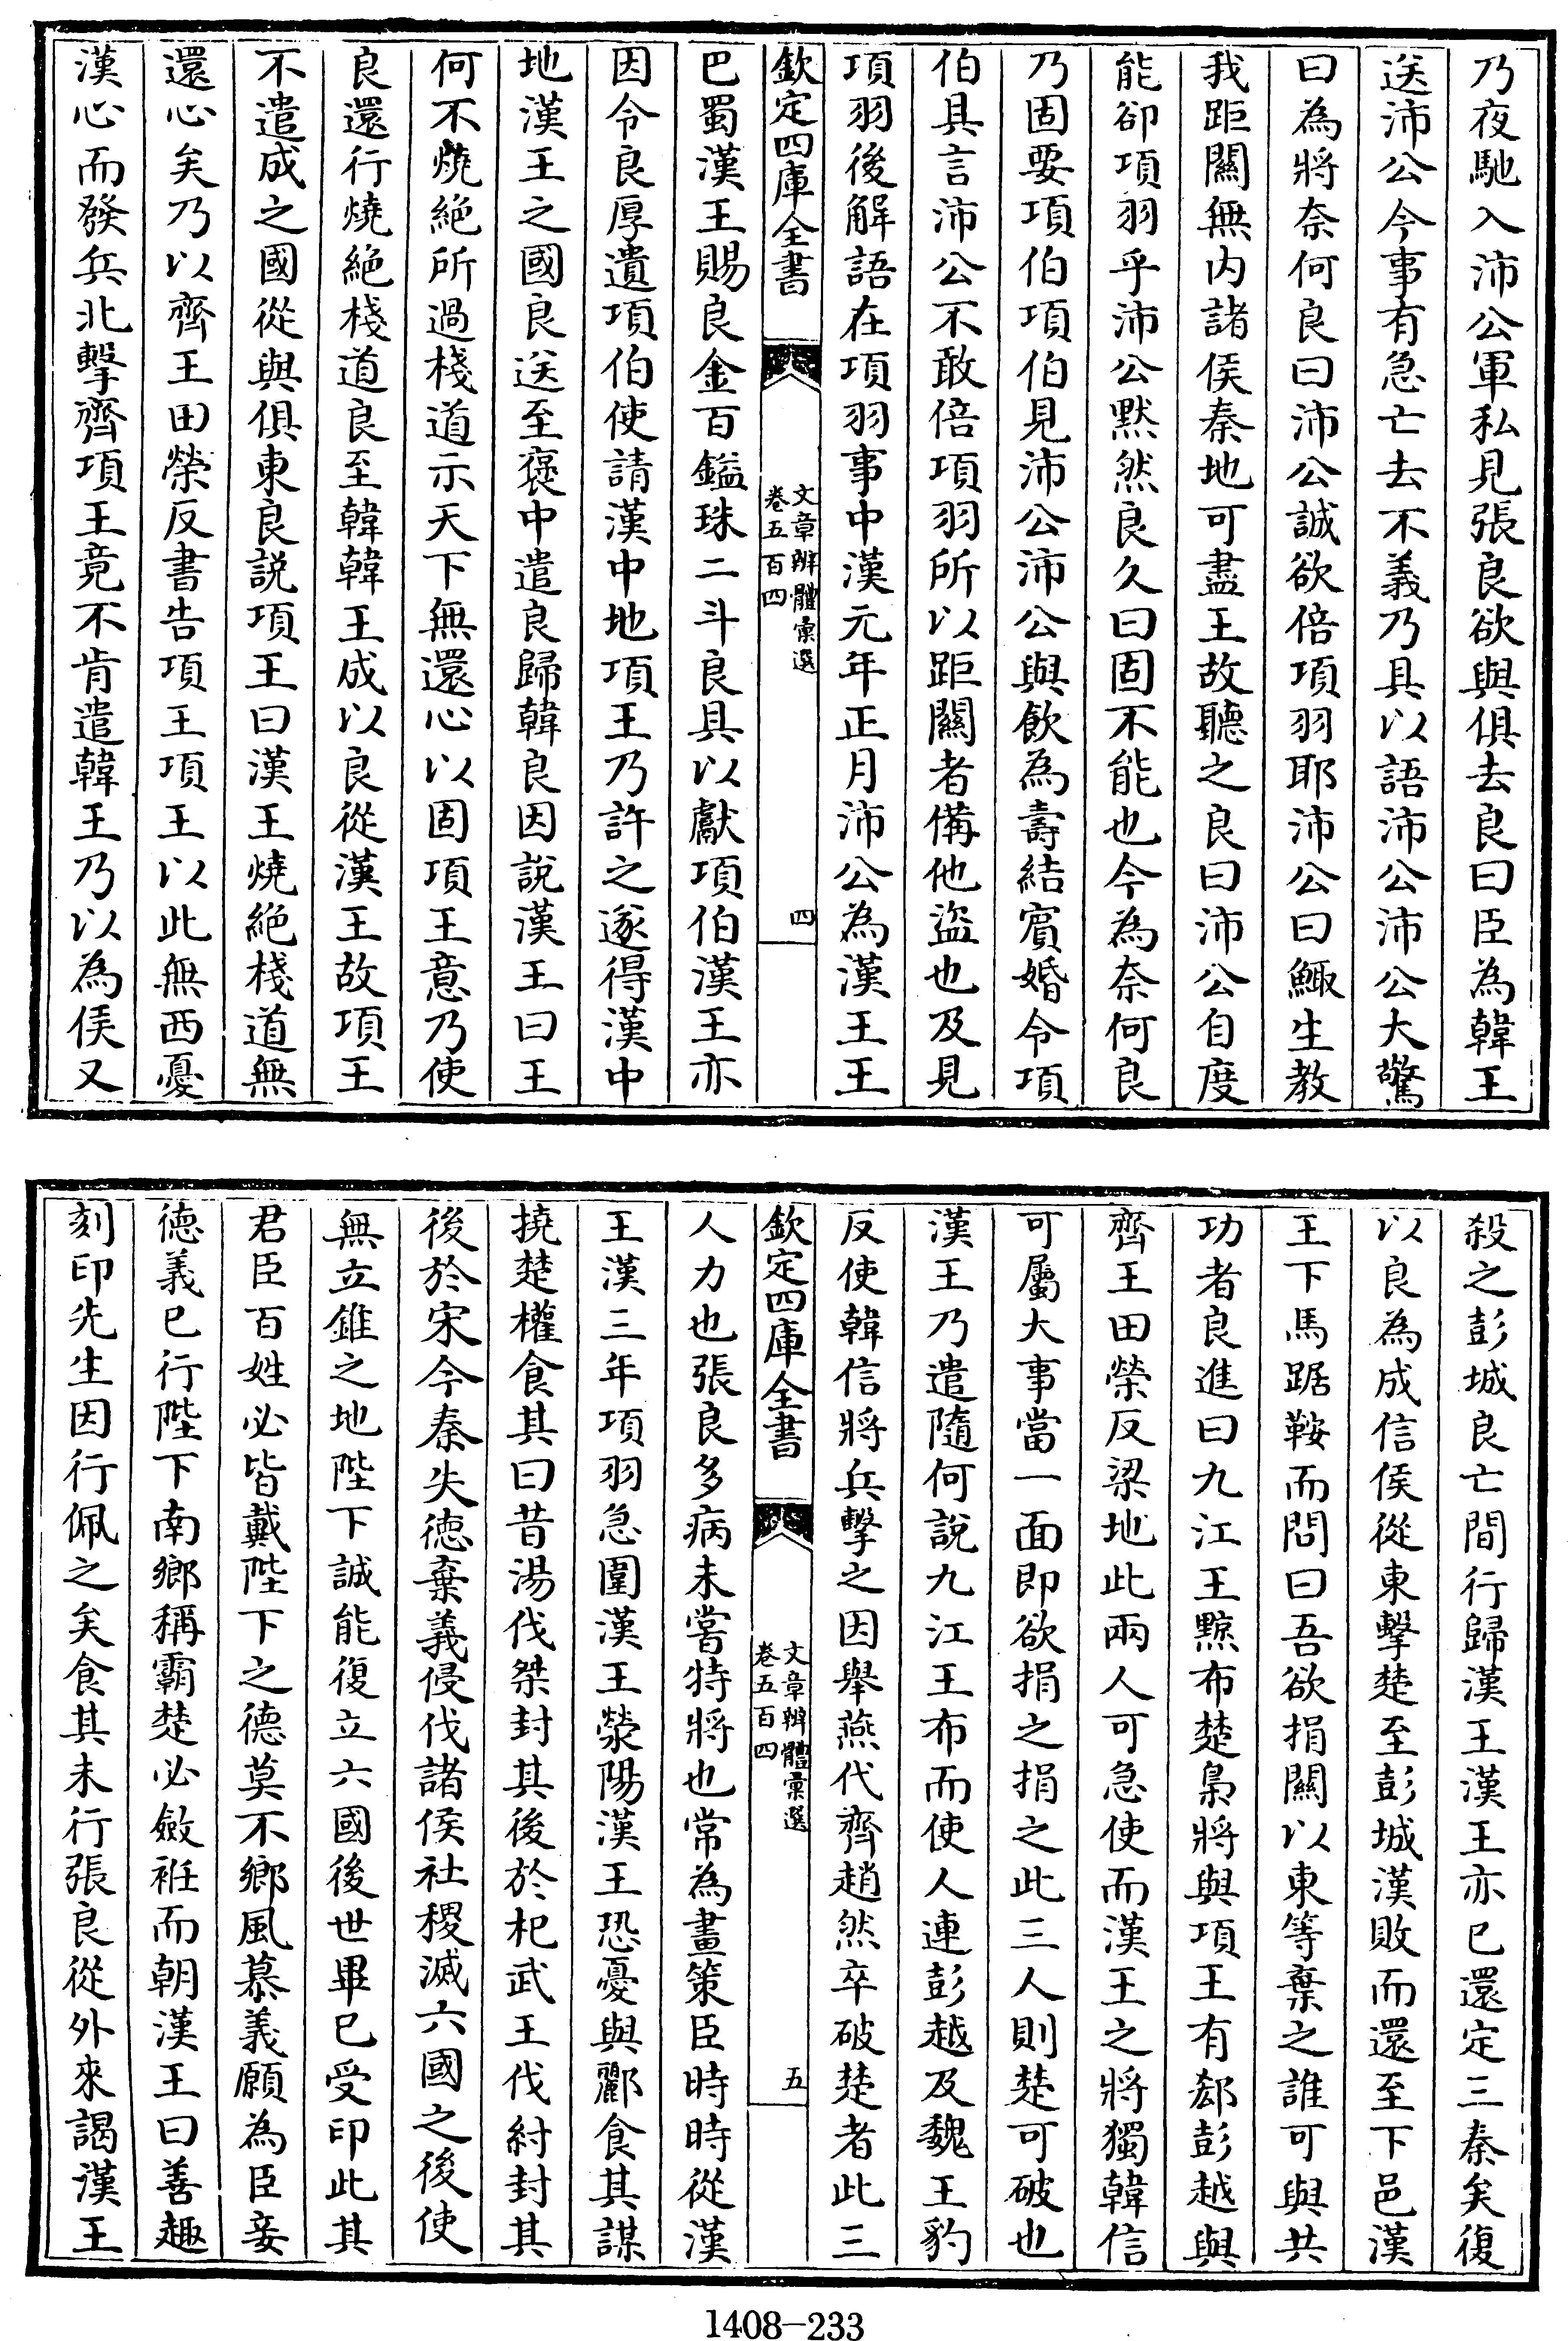 乃夜馳入沛公軍私見張良欲與俱去良曰臣為韓王
送沛公今事有急亡去不義乃具以語沛公沛公大驚
曰為將奈何良曰沛公誠欲倍項羽耶沛公曰鯫生教
我距關無内諸侯秦地可盡王故聽之良曰沛公自度
能卻項羽乎沛公黙然良久曰固不能也今為奈何良
乃固要項伯項伯見沛公沛公與飲為壽結賓婚令項
伯具言沛公不敢倍項羽所以距關者備他盜也及見
項羽後解語在項羽事中漢元年正月沛公為漢王王
欽定四庫全書
文章辨體彚選
卷五百四
四
巴蜀漢王賜良金百鎰珠二斗良具以獻項伯漢王亦
因令良厚遺項伯使請漢中地項王乃許之遂得漢中
地漢王之國良送至褒中遣良歸韓良因說漢王曰王
何不燒絶所過棧道示天下無還心以固項王意乃使
良還行燒絶棧道良至韓韓王成以良從漢王故項王
不遣成之國從與俱東良說項王曰漢王燒絶棧道無
還心矣乃以齊王田榮反書告項王項王以此無西憂
漢心而發兵北擊齊項王竟不肯遣韓王乃以為侯又
殺之彭城良亡間行歸漢王漢王亦已還定三秦矣復
以良為成信侯從東擊楚至彭城漢敗而還至下邑漢
王下馬踞鞍而問曰吾欲捐關以東等棄之誰可與共
功者良進曰九江王黥布楚梟將與項王有郄彭越與
齊王田榮反梁地此兩人可急使而漢王之將獨韓信
可屬大事當一面即欲捐之捐之此三人則楚可破也
漢王乃遣隨何說九江王布而使人連彭越及魏王豹
反使韓信將兵擊之因舉燕代齊趙然卒破楚者此三
欽定四庫全書
文章辨體彚選
卷五百四
五
人力也張良多病未嘗特將也常為畫策臣時時從漢
王漢三年項羽急圍漢王滎陽漢王恐憂與酈食其謀
撓楚權食其曰昔湯伐桀封其後於杞武王伐紂封其
後於宋今秦失德棄義侵伐諸侯社稷滅六國之後使
無立錐之地陛下誠能復立六國後世畢已受印此其
君臣百姓必皆戴陛下之德莫不鄉風慕義願為臣妾
德義已行陛下南鄉稱霸楚必斂衽而朝漢王曰善趣
刻印先生因行佩之矣食其未行張良從外來謁漢王
1408-233